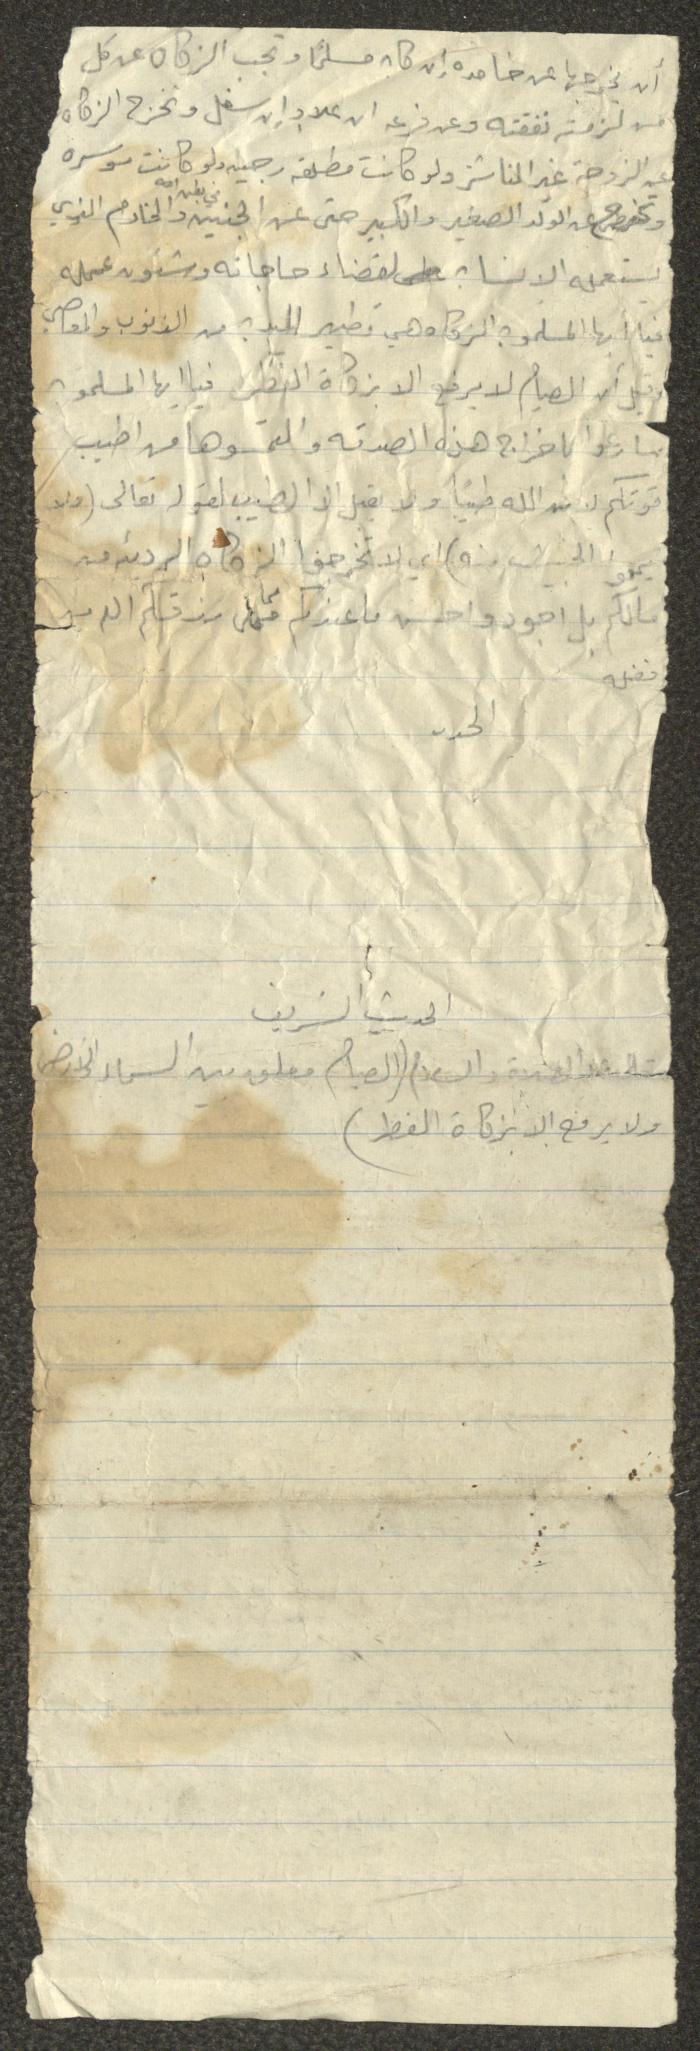 أن يخرجها عن خادمه إن كان مسلمًا وتجب الزكاة عن كل
من لزمته نفقته وعن فرعه ان علا وإن سفل وتخرج الزكاة
عن الزوجة غير الناشز ولو كانت مطلقه رجعيه ولو كانت موسره
وتخرج عن الولد الصغير والكبير حتى عن الجنين في بطن امه والخادم الذي
يستعمله الانسان لقضاء حاجاته وشئون عمله
فيا أيها المسلمون الزكاه هي تطهير للبدن من الذنوب والمعاصي
وقيل أن الصيام لا يرفع الا بزكاة الفطر فيا ايها المسلمون
سارعوا لاخراج هذه الصدقه والتمسوها من اطيب
قوتكم لان الله طيبًا ولا يقبل الا الطيب لقوله تعالى (ولا
تيمموا الخبيث منه) اي لا تخرجوا الزكاه الرديئه من
مالكم بل اجود واحسن ما عندكم مما رزقكم الله من
فضله
الحد
الحديث الشريف
عليه الصلاة والسلام (الصيام معلق بين السماء والأرض
ولا يرفع إلا بزكاة الفطر)